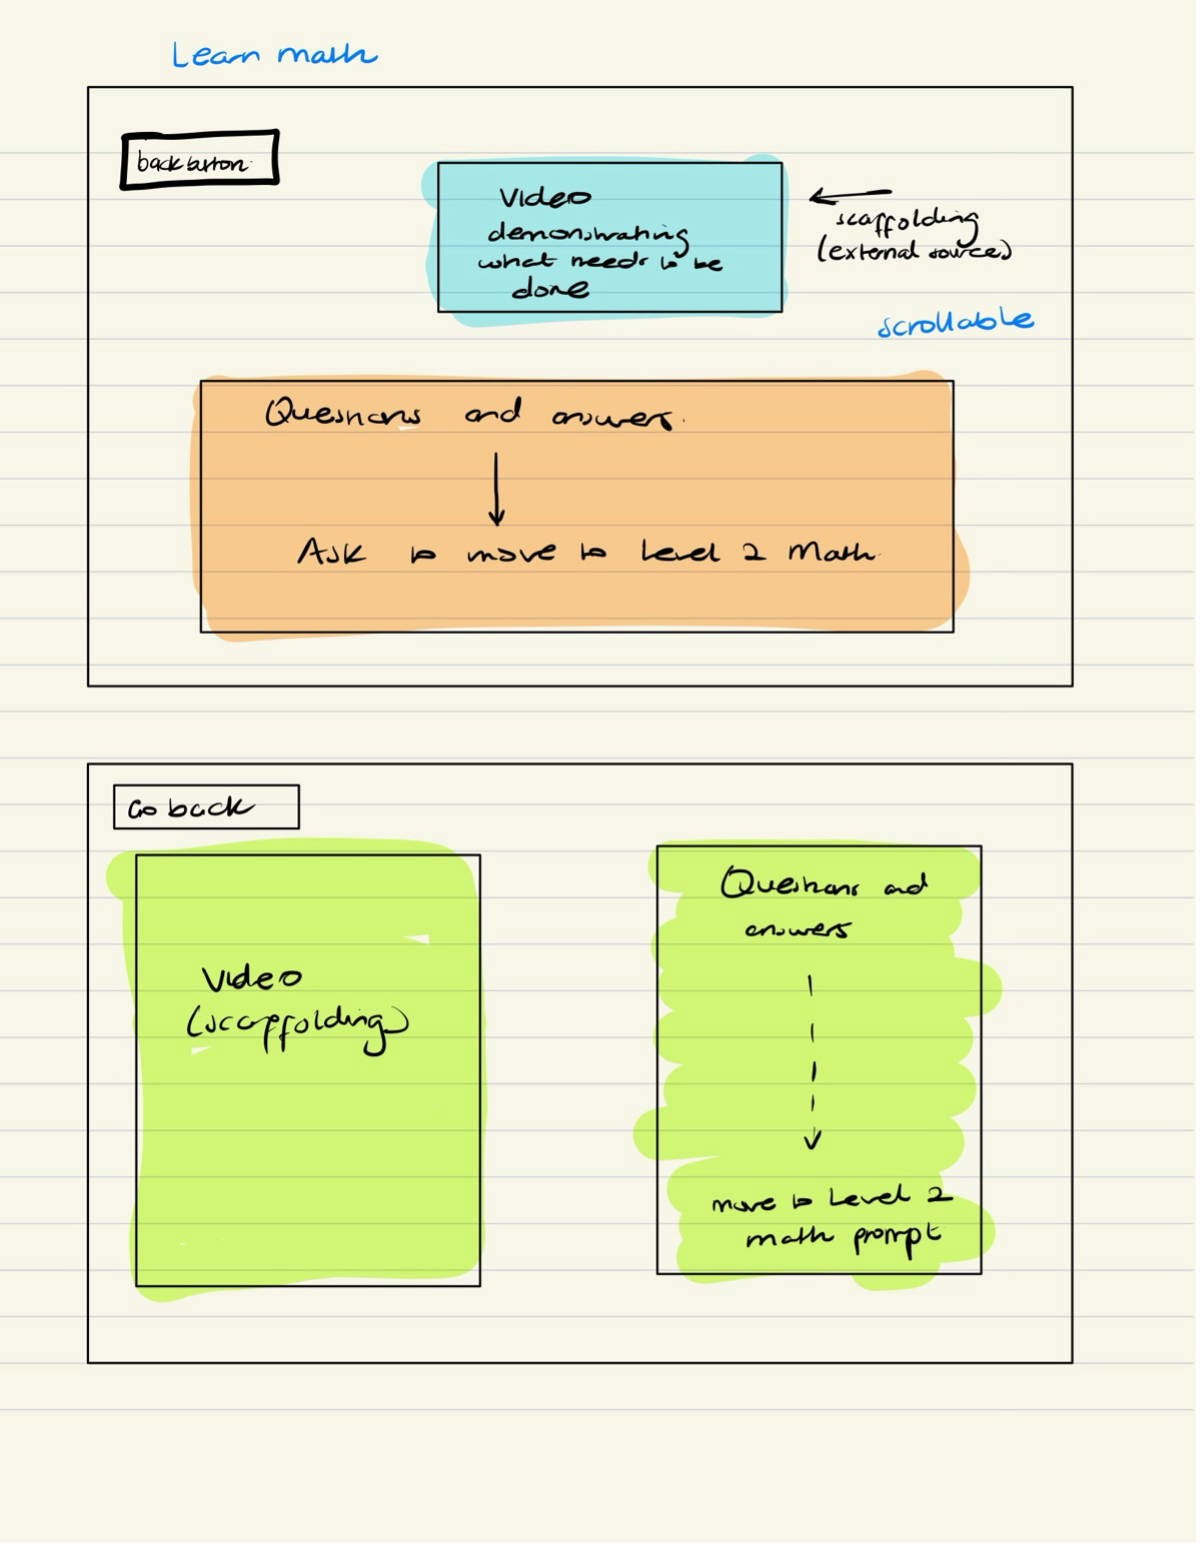 Learn math
back button
Video
demonstrating
what needs to be
done
scaffolding
(external sources)
scrollable
Questions and answers.
Ask to move to Level 2 Math
Go back
Video
(scaffolding)
Questions and
answers
move to Level 2
math prompt